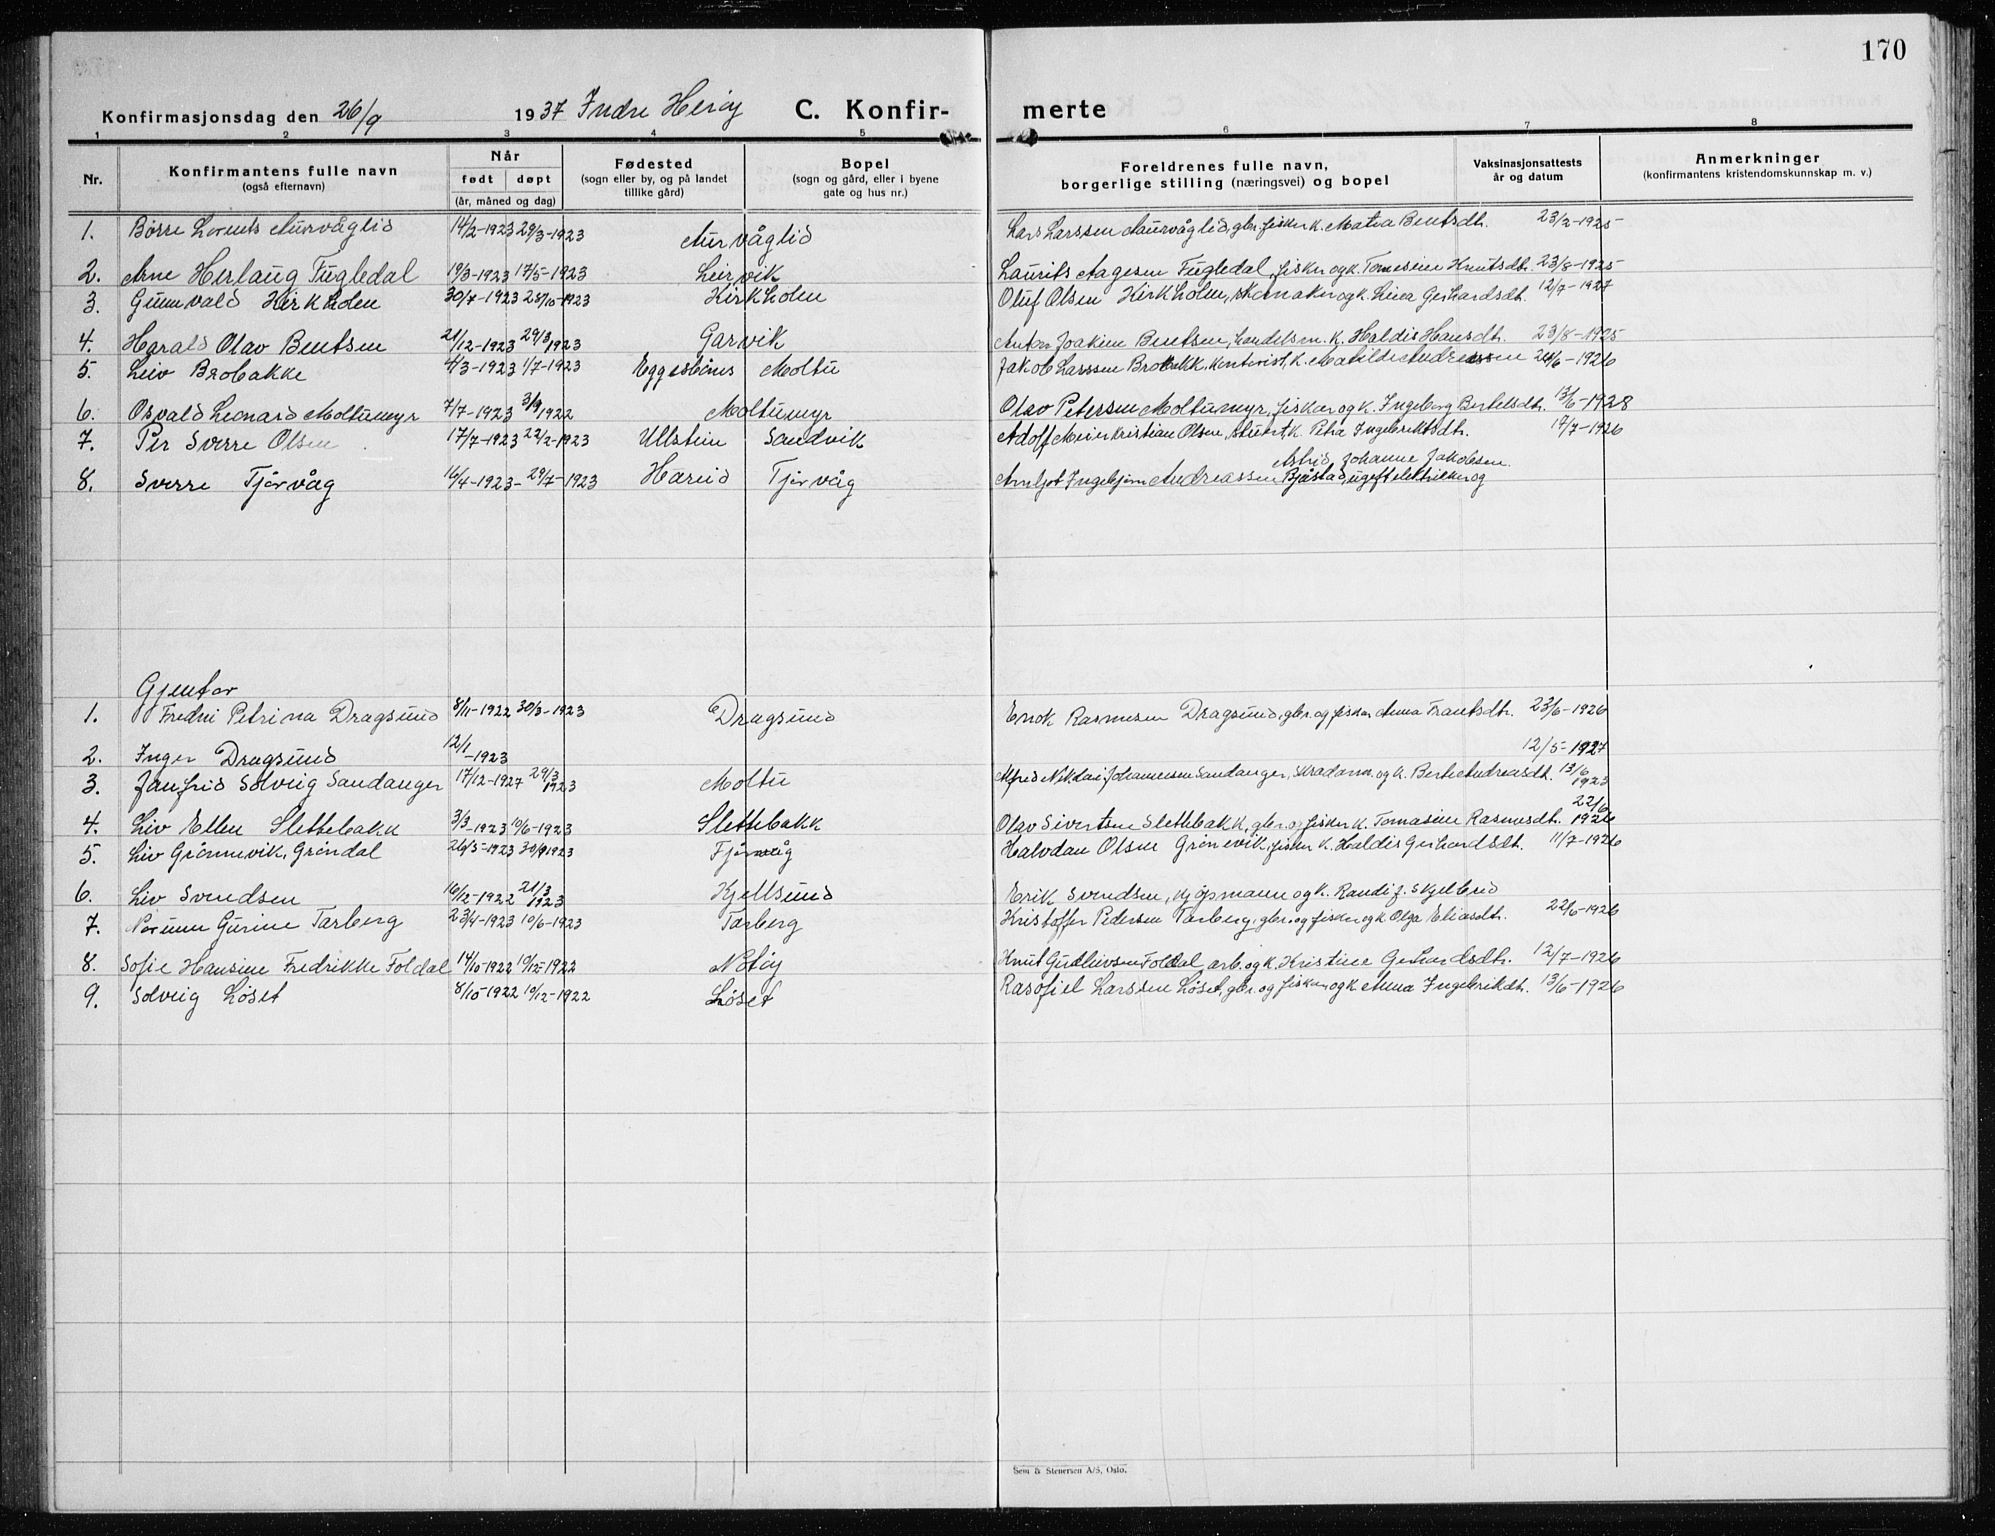 170
Konfirmasjonsdag den 26/9 1937 Indre Herøy C. Konfir- merte
1 2 3 4 5 6 7 8
Nr. Konfirmantens fulle navn (også efternavn) Når født døpt (år, måned og dag) Fødested (sogn eller by, og på landet tillike gård) Bopel (sogn og gård, eller i byene gate og hus nr.) Foreldrenes fulle navn, borgerlige stilling (næringsvei) og bopel Vaksinasjonsattests år og datum Anmerkninger (konfirmantens kristendomskunnskap m. v.)
1. Børre Lorents Aurvåglid 14/2-1923 29/3-1923 Aurvåglid Lars Larssen Aurvåglid, gbr. fisker k. Matea Bentsdt. 23/2-1925
2. Arne Herlaug Fugledal 19/3-1923 17/5-1923 Leirvik Laurits Aagesen Fugledal, fisker og k. Tomesine Knutsdt. 23/8-1925
3. Gunnvald Kirkholm 30/7-1923 25/10-1923 Kirkholm Oluf Olsen Kirkholm, skomaker og k. Lina Gerhardsdt. 12/7-1927
4. Harald Olav Bentsen 21/12-1923 29/3 1923 Garvik Anton Joakim Bentsen, handelsm. k. Haldis Hansdt. 23/8-1925
5. Leiv Brobakke 4/3-1923 1/7-1923 Eggesbønes Moltu Jakob Larssen Brobakk, kontorist, k. Matilde Andreassen 24/6-1926
6. Osvald Leonard Moltumyr 7/7-1923 3/9 1922 Moltumyr Olav Petersen Moltumyr, fisker og k. Ingeborg Bertelsdt. 13/6-1928
7. Per Sverre Olsen 17/7-1923 22/2-1923 Ullstein Sandvik Adolf Meier Kristian Olsen, k. Petra Ingebriktsdt. 17/7-1926
Astrid Johanne Jakobsen
8. Sverre Tjørvåg 16/4-1923- 29/7-1923 Hareid Tjørvåg Arnljot Ingebjørn Andreassen Bjåstad, ugift elektriker og
Gjentor
1. Fredni Petrina Dragsund 8/11-1922 30/3-1923 Dragsund Enok Rasmusen Dragsund, gbr. og fisker Anna Frantsdt. 23/6-1926
2. Inger Dragsund 12/1-1923 12/5-1927
3. Janfrid Solveig Sandanger 17/12-1927 29/3 1923 Moltu Alfred Nikolai Johannesen Sandanger, og k. Berte Andreasdt. 13/6 1923
4. Liv Ellen Slettebakk 3/3-1923 10/6-1923 Slettebakk Olav Sivertsen Slettebakk, gbr. og fisker k. Tomasine Rasmusdt. 22/6 1926
5. Liv Grønnevik, Grøndal 26/5-1923 30/9 1923 Halvdan Olsen Grønevik, fisker k. Haldis Gerhardsdt. 11/7-1926
6. Liv Svendsen 16/12-1922 21/3 1923 Kjellsund Erik Svendsen, kjøpmann og k. Randi f. Skjelbred
7. Norunn Gurine Tarberg 23/4-1923 10/6-1923 Tarberg Kristoffer Pedersen Tarberg, gbr. og fisker og k Olga Eliasdt. 22/6-1926
8. Sofie Hansine Fredrikke Foldal 14/10-1922 10/12-1922 Notøy Knut Gudleivsen Foldal, arb. og k. Kristine Gerhardsdt. 12/7-1926
9. Solveig Løset 8/10-1922 10/12-1922 Løset Rasofiel Larssen Løset, gbr. og fisker og k Anna Ingebrikdt. 13/6-1926
Sem & Stenersen A/S, Oslo.